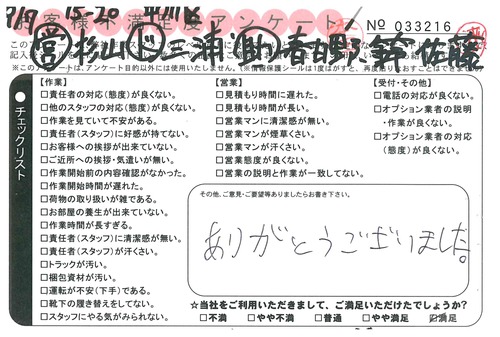 7/9 15-20
お客様不満足度アンケート
No 033216
営 杉山 ド 三浦 助 春日野、鈴、佐藤
※このアンケートは、アンケート目的以外には使用いたしません。
●チェックリスト
【作業】
□責任者の対応(態度)が良くない。
□他のスタッフの対応(態度)が良くない。
□作業を見ていて不安がある。
□責任者(スタッフ)に好感が持てない。
□お客様への挨拶が出来ていない。
□ご近所への挨拶・気遣いが無い。
□作業開始前の内容確認がなかった。
□作業開始時間が遅れた。
□荷物の取り扱いが雑である。
□お部屋の養生が出来ていない。
□作業時間が長すぎる。
□責任者(スタッフ)に清潔感が無い。
□責任者(スタッフ)が汗くさい。
□トラックが汚い。
□梱包資材が汚い。
□運転が不安(下手)である。
□靴下の履き替えをしてない。
□スタッフにやる気がみられない。
【営業】
□見積もり時間に遅れた。
□見積もり時間が長い。
□営業マンに清潔感が無い。
□営業マンが煙草くさい。
□営業マンが汗くさい。
□営業態度が良くない。
□営業の説明と作業が一致してない。
【受付・その他】
□電話の対応が良くない。
□オプション業者の説明
・作業が良くない。
□オプション業者の対応
(態度)が良くない。
その他、ご意見・ご要望等ありましたらお書き下さい。
ありがとうございました。
☆当社をご利用いただきまして、ご満足いただけてでしょうか?
□不満 □やや不満 □普通 □やや満足 ☑満足